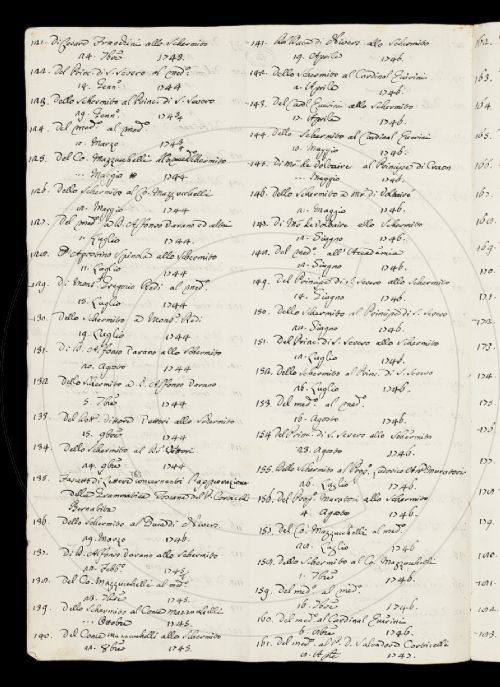 121. Di Cesare Frassoni allo Schermito
24. 7bre 1743.
122. Del Princ. di S. Severo al med.o
14. Genn. 1744
123. Dello Schermito al Princ. di S. Severo
29. Genn. 1744
124. Del med.o al med.o
10. Marzo 1744
125. Del Co. Mazzuchelli allo Schermito
... Maggio 1744
126. Dello Schermito al Co. Mazzuchelli
12. Maggio 1744
127. Del med.o a D. Alfonso Varano ed altri
1. Luglio 1744.
128. Di Agostino Spinola allo Schermito
11. Luglio 1744
129. Di Mons.r Gregorio Redi al med.o
15. Luglio 1744
130. Dello Schermito a Mons.r Redi
19. Luglio 1744
131. Di D. Alfonso Varano allo Schermito
20. Agosto 1744
132. Dello Schermito a D. Alfonso Varano
5. 7bre 1744
133. Del Dott. Vettori allo Schermito
15. 9bre 1744
134. Dello Schermito al Vettori
24. 9bre 1744
135. Fascetto di Lettere concernenti l'approvazione
della Grammatica Toscana del P. Corticelli
Bernabita
136. Dello Schermito al
29. Marzo 1746.
137. Di D. Alfonso Varano allo Schermito
20. Febb. 1745.
138. Del Co. Mazzuchelli al med.o
23. 7bre 1745.
139. Dello Schermito al Conte Mazzuchelli
... Ottobre 1745.
140. Del Conte Mazzuchelli allo Schermito
21. 8bre 1745.
141. allo Schermito
19. Aprile 1746.
142. Dello Schermito al Cardinal Quirini
2. Aprile 1746.
143. Del Card. Quirini allo Schermito
17. Aprile 1746.
144. Dello Schermito al Cardinal Quirini
10. Maggio 1746.
145. Di Mr. de Voltaire al Principe di Craon
... Maggio 1746.
146. Dello Schermito a Mr. di Voltaire
21. Maggio 1746.
147. Di Mr. de Voltaire allo Schermito
12. Giugno 1746.
148. Del med.o all'Accademia
12. Giugno 1746.
149. Del Principe di S. Severo allo Schermito
14. Giugno 1746.
150. Dello Schermito al Principe di S. Severo
20. Giugno 1746.
151. Del Princ. di S. Severo allo Schermito
12. Luglio 1746.
152. Dello Schermito al Princ. di S. Severo
26. Luglio 1746.
153. Del med.o al med.o
16. Agosto 1746.
154. Del Princ. di S. Severo allo Schermito
23. Agosto 1746.
155. Dello Schermito al Prop. Lodovico Ant. Muratori
26. Luglio 1746.
156. Del Prop. Muratori allo Schermito
4. Agosto 1746.
157. Del Co. Mazzuchelli al med.o
21. Luglio 1746
158. Dello Schermito al Co. Mazzuchelli
1. 7bre 1746.
159. Del med.o al med.o
16. 7bre 1746.
160. Del med.o al Cardinal Quirini
6. 1746.
161. Del med.o al P. D. Salvadore Corticelli
1747.
162.
163.
164.
165.
166.
167.
168.
169.
170.
171.
172.
173.
174.
175.
176.
177.
178.
179.
180.
181.
182.
183.